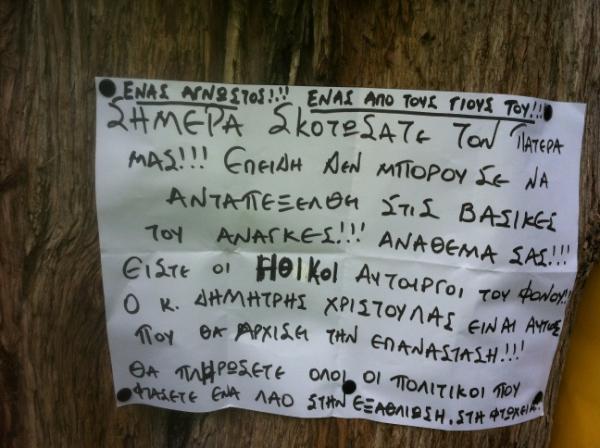 ΕΝΑΣ ΑΓΝΩΣΤΟΣ!!!! ΕΝΑΣ ΑΠΟ ΤΟΥΣ ΓΙΟΥΣ ΤΟΥ!!
ΣΗΜΕΡΑ ΣΚΟΤΩΣΑΤΕ ΤΟΝ ΠΑΤΕΡΑ
ΜΑΣ!!! ΕΠΕΙΔΗ ΔΕΝ ΜΠΟΡΟΥΣΕ ΝΑ
ΑΝΤΑΠΕΞΕΛΘΗ ΣΤΙΣ ΒΑΣΙΚΕΣ
ΤΟΥ ΑΝΑΓΚΕΣ!!! ΑΝΑΘΕΜΑ ΣΑΣ!!!
ΕΙΣΤΕ ΟΙ ΗΘΙΚΟΙ ΑΥΤΟΙΡΓΟΙ ΤΟΥ ΦΟΝΟΥ!!
Ο Κ. ΔΗΜΗΤΡΗΣ ΧΡΙΣΤΟΥΛΑΣ ΕΙΝΑΙ ΑΥΤΟΣ
ΠΟΥ ΘΑ ΑΡΧΙΣΕΙ ΤΗΝ ΕΠΑΝΑΣΤΑΣΗ!!!
ΘΑ ΠΛΗΡΩΣΕΤΕ ΟΛΟΙ ΟΙ ΠΟΛΙΤΙΚΟΙ ΠΟΥ
ΦΤΑΣΕΤΕ ΕΝΑ ΛΑΟ ΣΤΗΝ ΕΞΑΘΛΙΩΣΗ, ΣΤΗ ΦΤΩΧΕΙΑ!